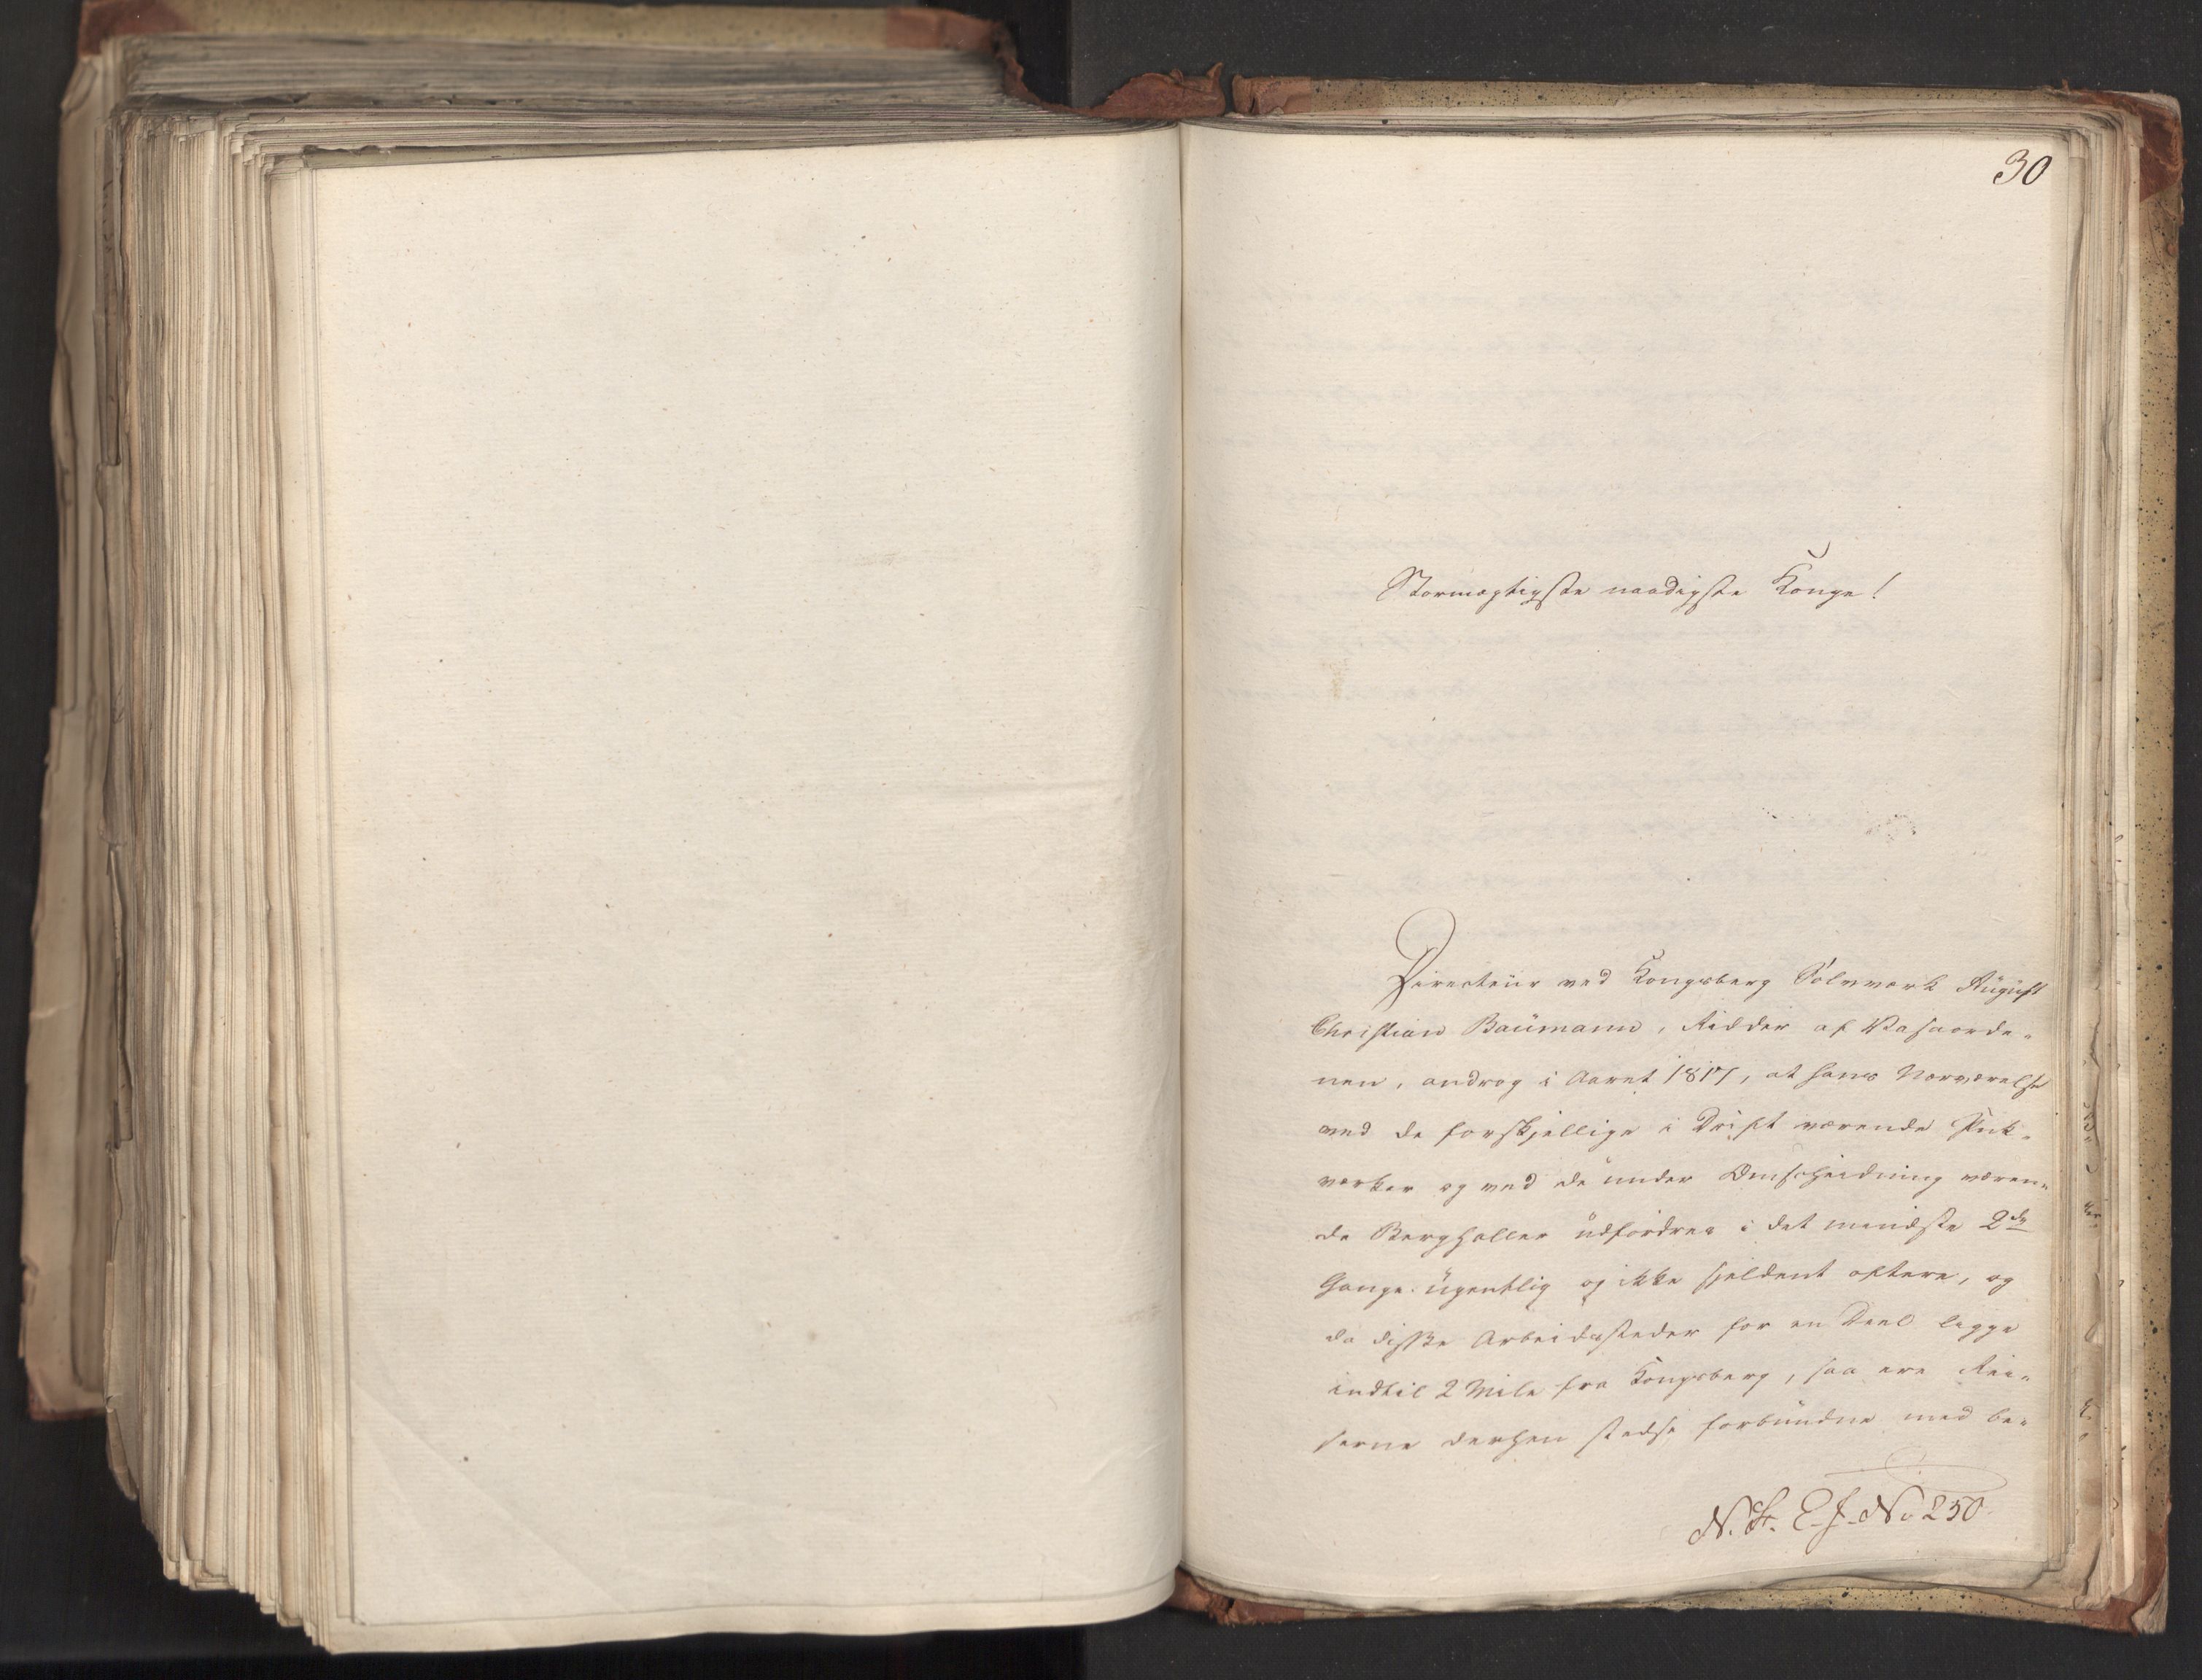 30
Stormægtigste naadigste Konge!
Directeur ved Kongsberg Sølvværk August
Christian Baumann, Ridder af Vasaorde-
nen, androg i Aaret 1817, at hans Nærværelse
ved de forskjellige i Drift værende Puk-
værker og ved de under Omscheidning væren-
de Berghaller udfordres i det mindste 2de
Gange ugentlig og ikke sjeldent oftere, og
da disse Arbeidssteder for en Deel ligge
indtil 2 Mile fra Kongsberg, saa ere Rei-
serne derhen stedse forbundne med be-
N. St. E. J. No 250